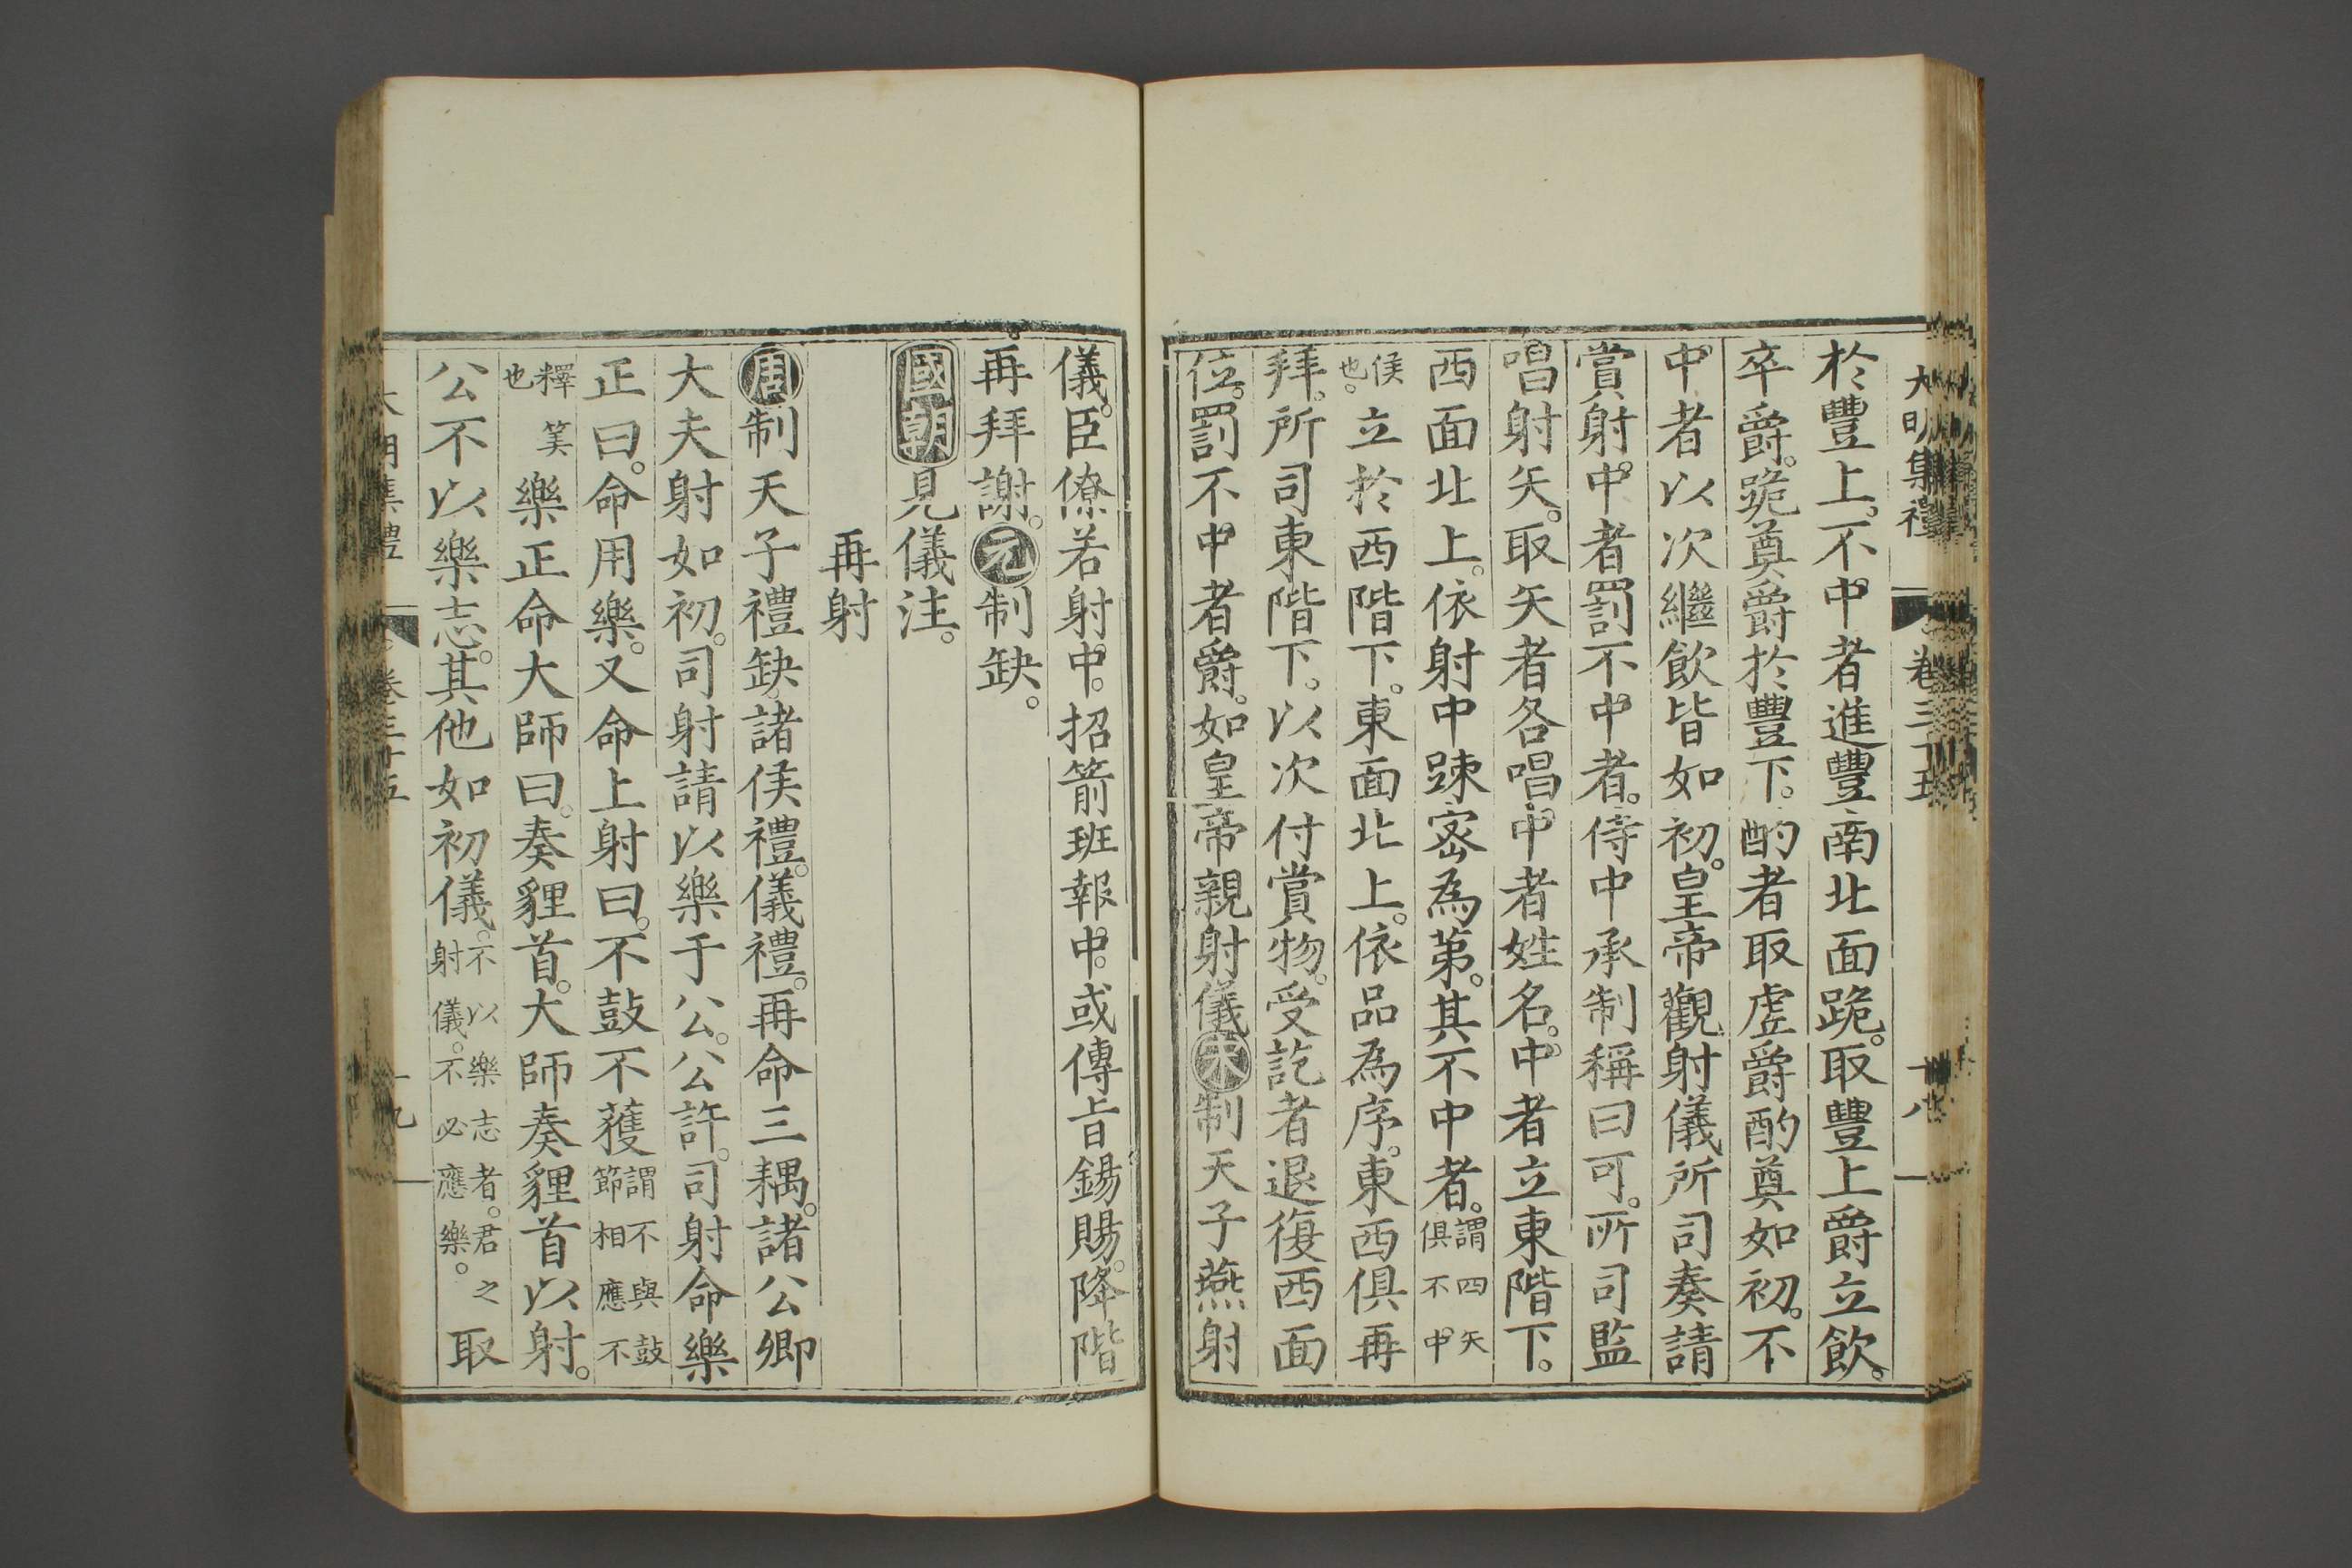 大明集禮 卷三十五 十八
於豐上。不中者進豐南北面跪。取豐上爵立飲。
卒爵。跪奠爵於豐下。酌者取虛爵酌奠如初。不
中者以次繼飲皆如初。皇帝觀射儀所司奏請
賞射中者罰不中者。侍中承制稱曰可。所司監
唱射矢。取矢者各唱中者姓名。中者立東階下。
西面北上。依射中踈宻為第。其不中者。謂四矢俱不中
侯也。立於西階下。東面北上。依品為序。東西俱再
拜。所司東階下。以次付賞物。受訖者退復西面
位。罰不中者爵。如皇帝親射儀宋制天子燕射
儀。臣僚若射中。招箭班報中。或傳㫖錫賜。降階
再拜謝。元制缺。
國朝見儀注。
再射
周制天子禮缺諸侯禮。儀禮。再命三耦。諸公卿
大夫射如初。司射請以樂于公。公許。司射命樂
正曰。命用樂。又命上射曰。不鼓不蒦謂不與鼓節相應不
釋筭也樂正命大師曰。奏貍首。大師奏貍首以射。
公不以樂志。其他如初儀。不以樂志者。君之射儀。不必應樂。取
大明集禮 卷三十五 十九